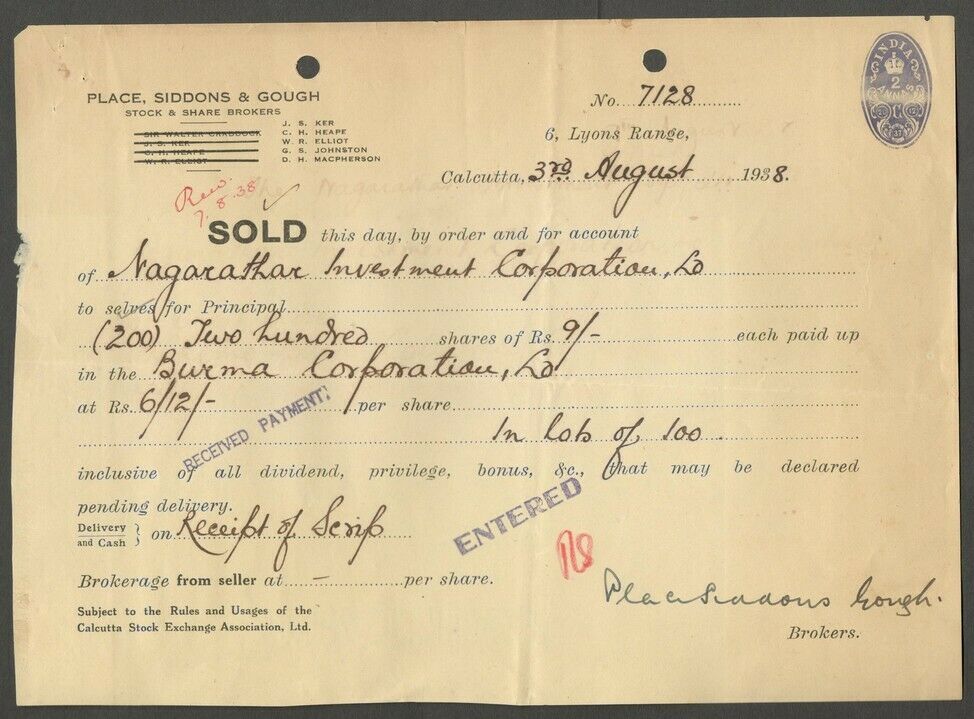 PLACE, SIDDONS & GOUGH
STOCK & SHARE BROKERS
SIR WALTER CRADDOCK
J. S. KER
C. H. HEAPE
W. R. ELLIOT
J. S. KER
C. H. HEAPE
W. R. ELLIOT
G. S. JOHNSTON
D. H. MACPHERSON
INDIA
2
No. 7128
6, Lyons Range,
Calcutta, 3rd August 1938.
7.8.38
SOLD this day, by order and for account
of Nagarathar Investment Corporation, Ld
to selves for Principal
(200) Two hundred shares of Rs. 9/- each paid up
in the Burma Corporation, Ld
at Rs. 6/12/- per share
RECEIVED PAYMENT
In lots of 100.
inclusive of all dividend, privilege, bonus, &c., that may be declared
pending delivery.
Delivery and Cash } on Receipt of Scrip
ENTERED
Brokerage from seller at - per share.
Subject to the Rules and Usages of the
Calcutta Stock Exchange Association, Ltd.
Place Siddons Gough.
Brokers.